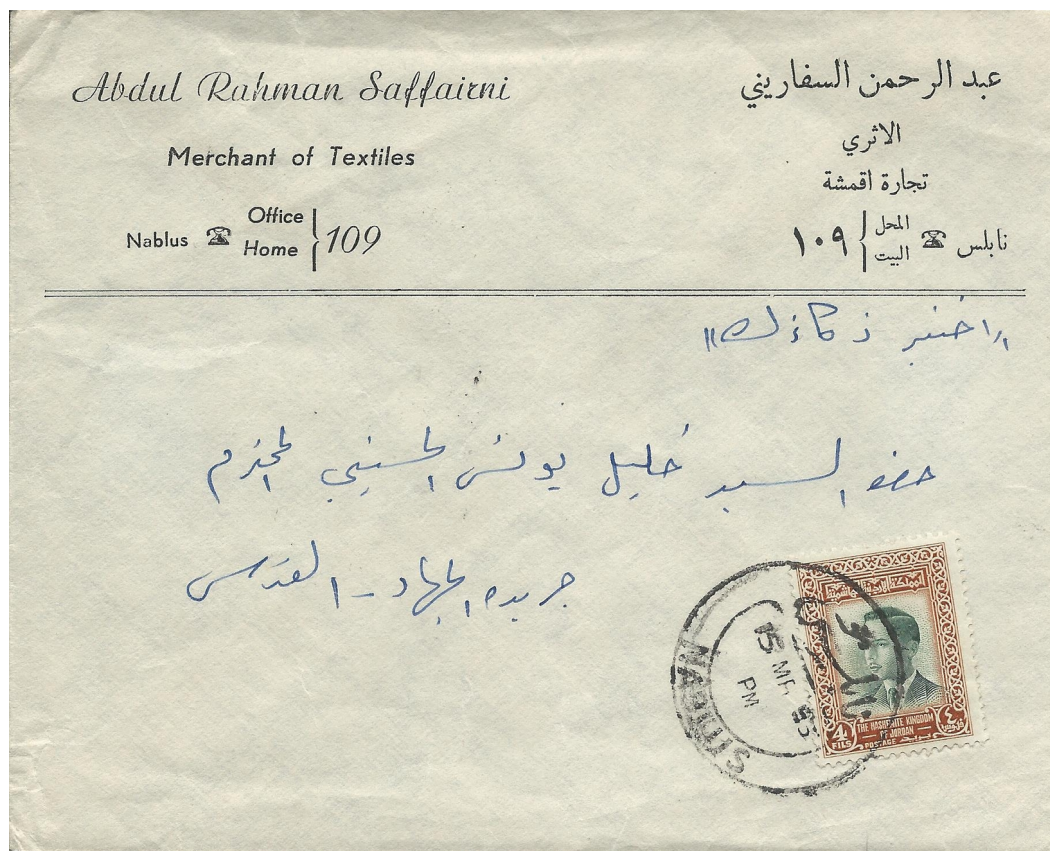 Abdul Rahman Saffairni
Merchant of Textiles
Nablus Office Home 109
عبد الرحمن السفاريني
الاثري
تجارة اقمشة
نابلس المحل البيت ١٠٩
"اختبر ذكاءك"
حضرة السيد خليل يونس الحسيني المحترم
جريدة الجهاد - القدس
NABLUS
15 MR
PM
المملكة الاردنية الهاشمية
4 FILS
THE HASHEMITE KINGDOM
OF JORDAN
POSTAGE بريد
٤ فلوس